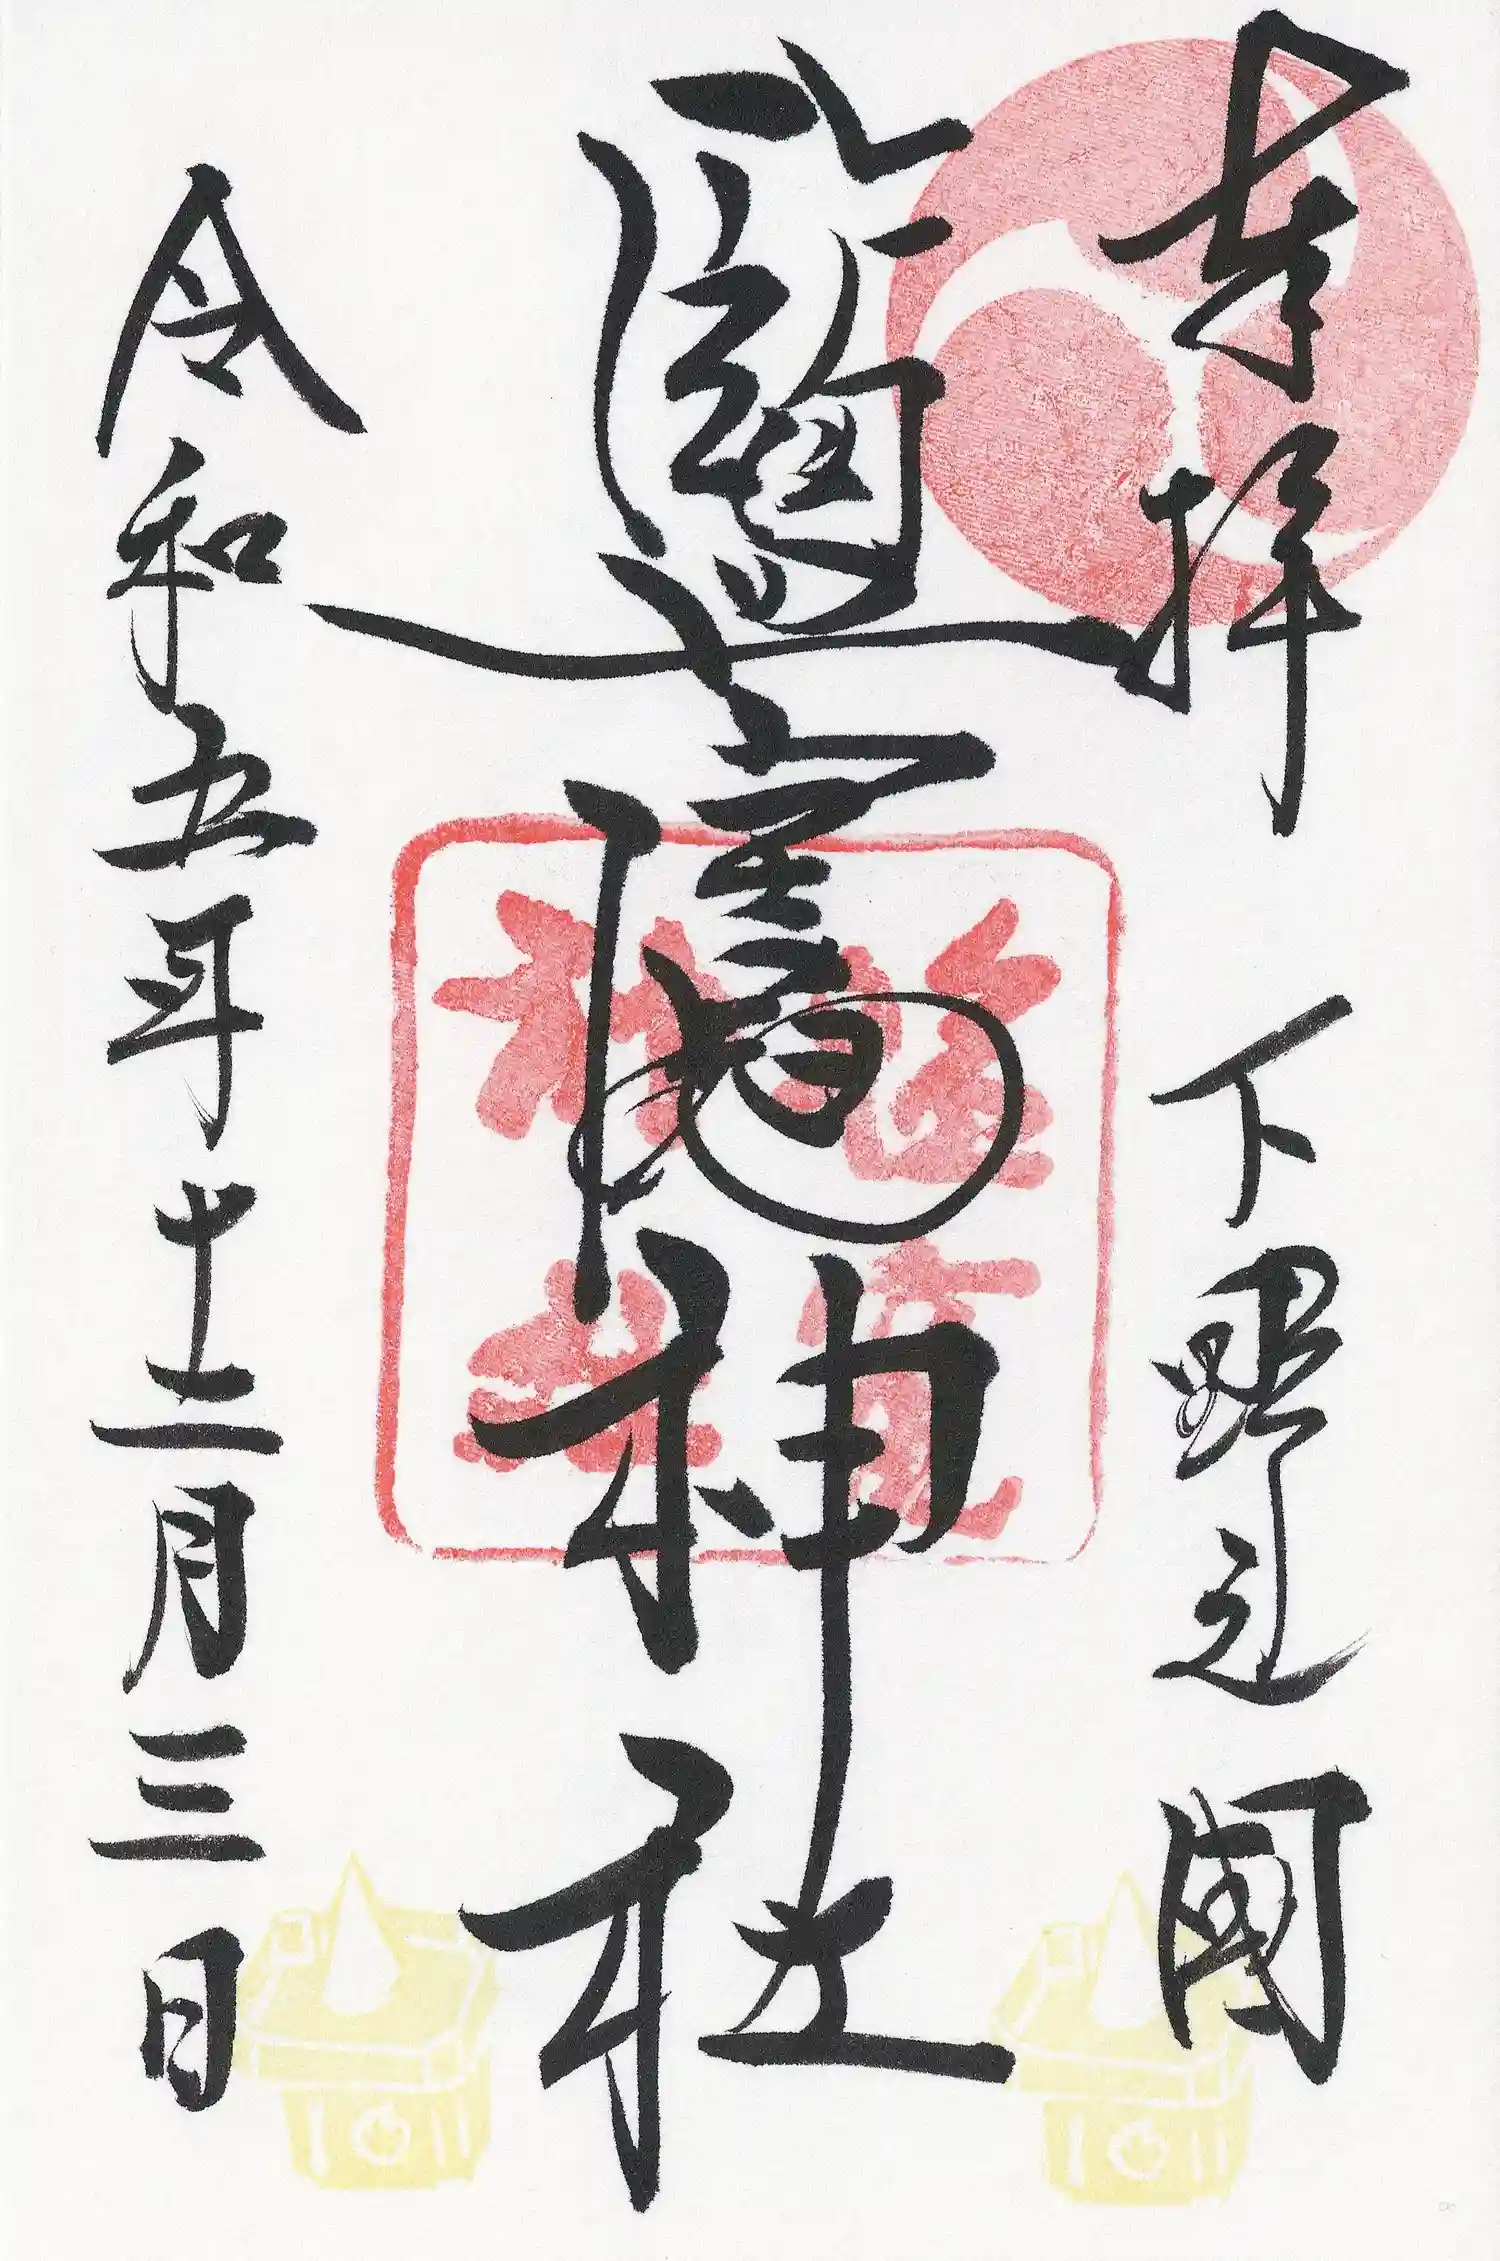 奉拝　下野之國
鹽竈神社
令和五年十二月三日